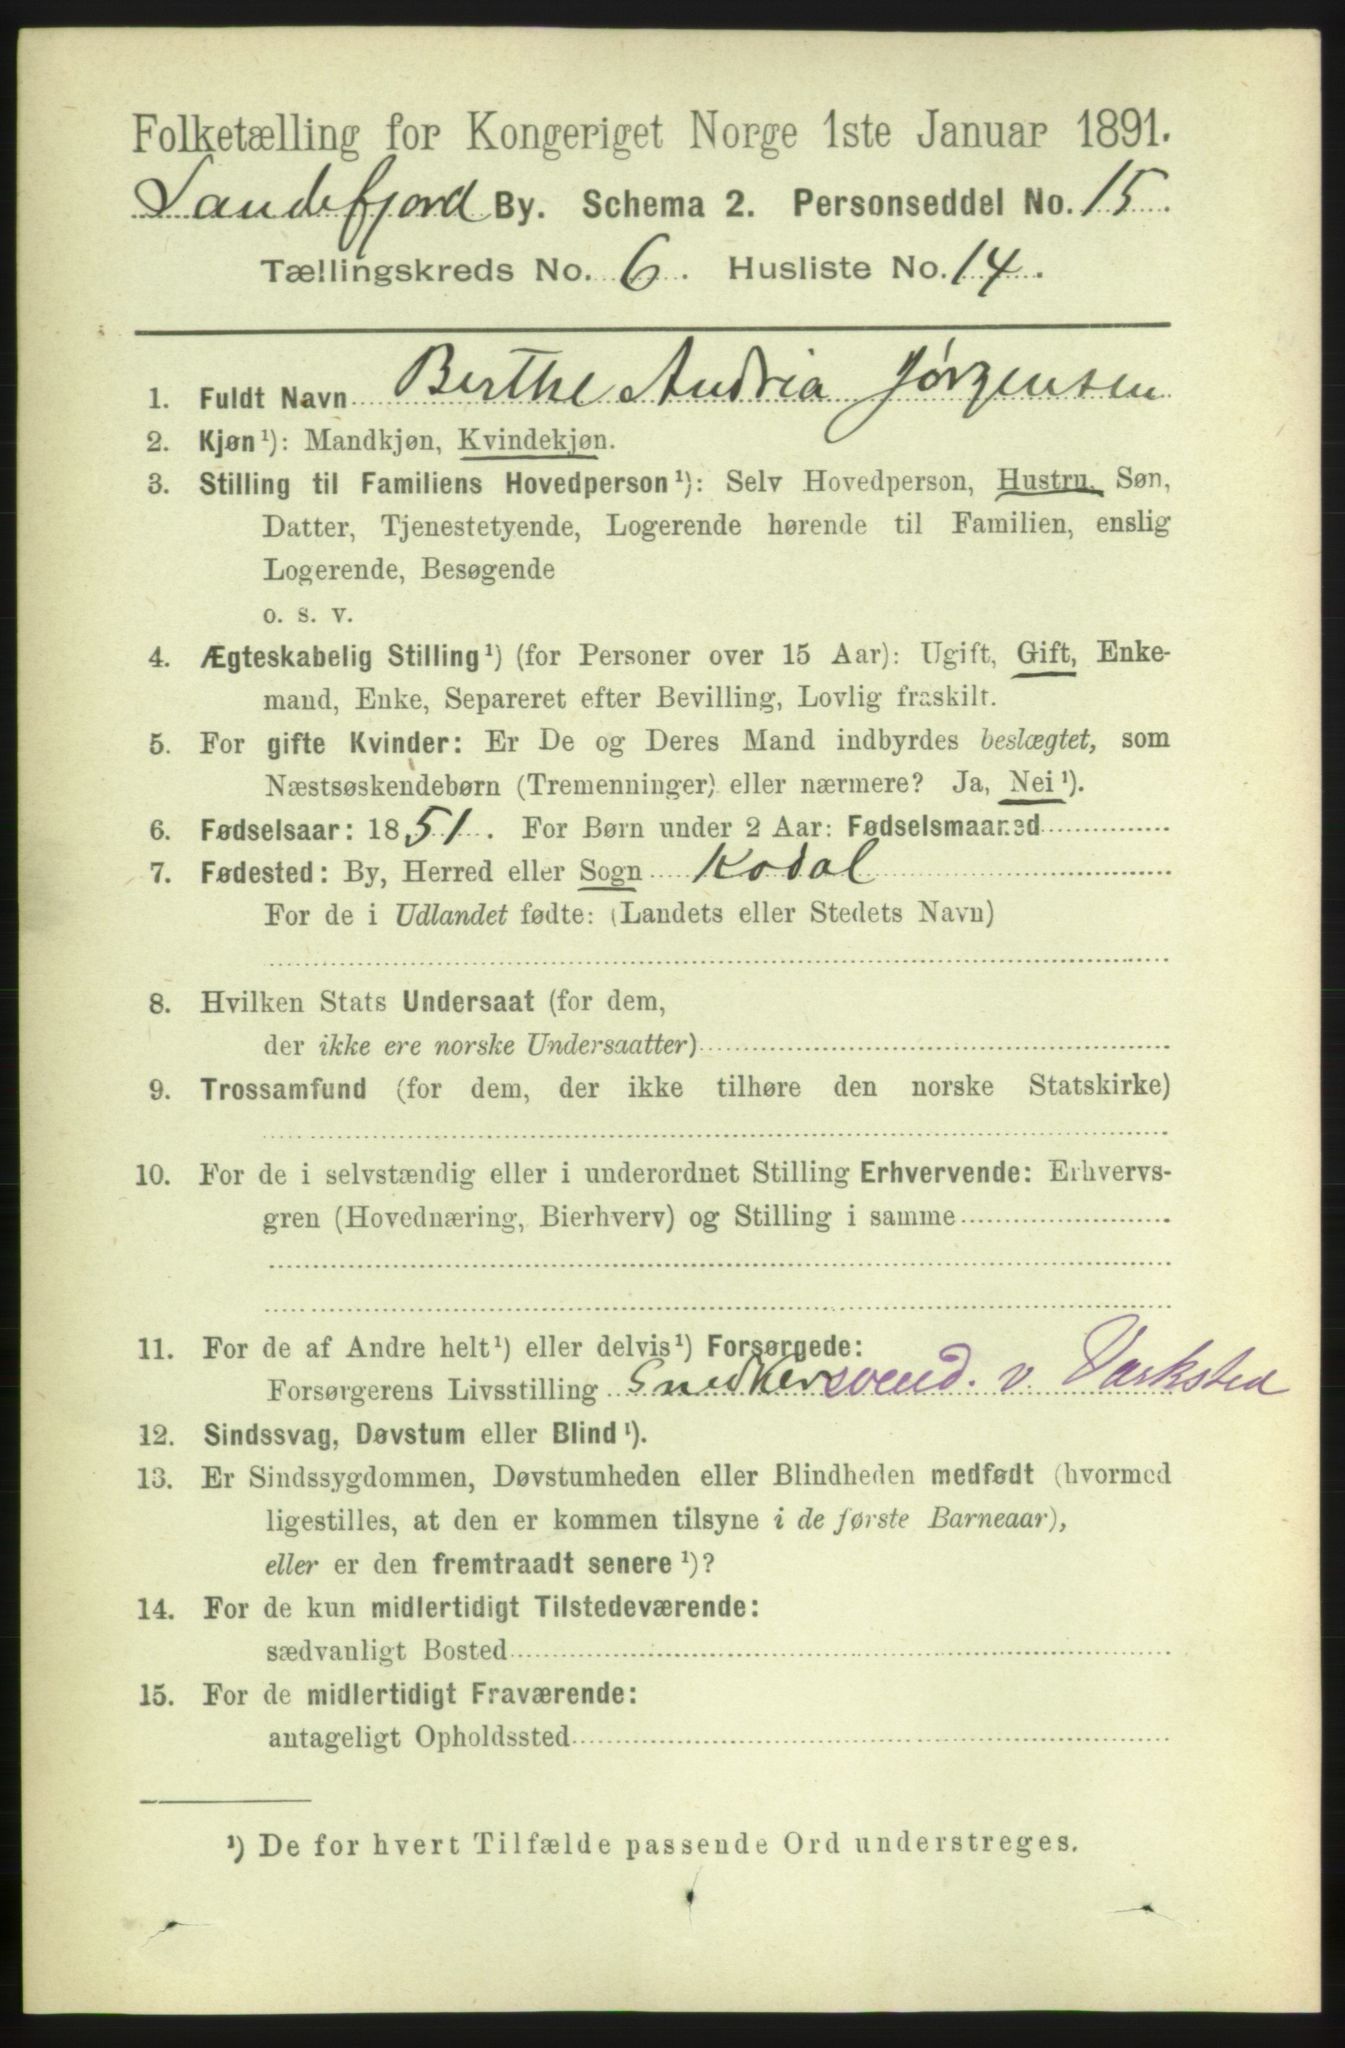 Folketælling for Kongeriget Norge 1ste Januar 1891.
Sandefjord By. Schema 2. Personseddel No. 15.
Tællingskreds No. 6. Husliste No. 14.
1. Fuldt Navn Berthe Andria Jørgensen
2. Kjøn¹): Mandkjøn, Kvindekjøn.
3. Stilling til Familiens Hovedperson¹): Selv Hovedperson, Hustru, Søn,
Datter, Tjenestetyende, Logerende hørende til Familien, enslig
Logerende, Besøgende
o. s. v.
4. Ægteskabelig Stilling¹) (for Personer over 15 Aar): Ugift, Gift, Enke-
mand, Enke, Separeret efter Bevilling, Lovlig fraskilt.
5. For gifte Kvinder: Er De og Deres Mand indbyrdes beslægtet, som
Næstsøskendebørn (Tremenninger) eller nærmere? Ja, Nei¹).
6. Fødselsaar: 1851. For Børn under 2 Aar: Fødselsmaaned
7. Fødested: By, Herred eller Sogn Kodal
For de i Udlandet fødte: (Landets eller Stedets Navn)
8. Hvilken Stats Undersaat (for dem,
der ikke ere norske Undersaatter)
9. Trossamfund (for dem, der ikke tilhøre den norske Statskirke)
10. For de i selvstændig eller i underordnet Stilling Erhvervende: Erhvervs-
gren (Hovednæring, Bierhverv) og Stilling i samme
11. For de af Andre helt¹) eller delvis¹) Forsørgede:
Forsørgerens Livsstilling Snedkersvend. v. Værksted
12. Sindssvag, Døvstum eller Blind¹).
13. Er Sindssygdommen, Døvstumheden eller Blindheden medfødt (hvormed
ligestilles, at den er kommen tilsyne i de første Barneaar),
eller er den fremtraadt senere¹)?
14. For de kun midlertidigt Tilstedeværende:
sædvanligt Bosted
15. For de midlertidigt Fraværende:
antageligt Opholdssted
¹) De for hvert Tilfælde passende Ord understreges.